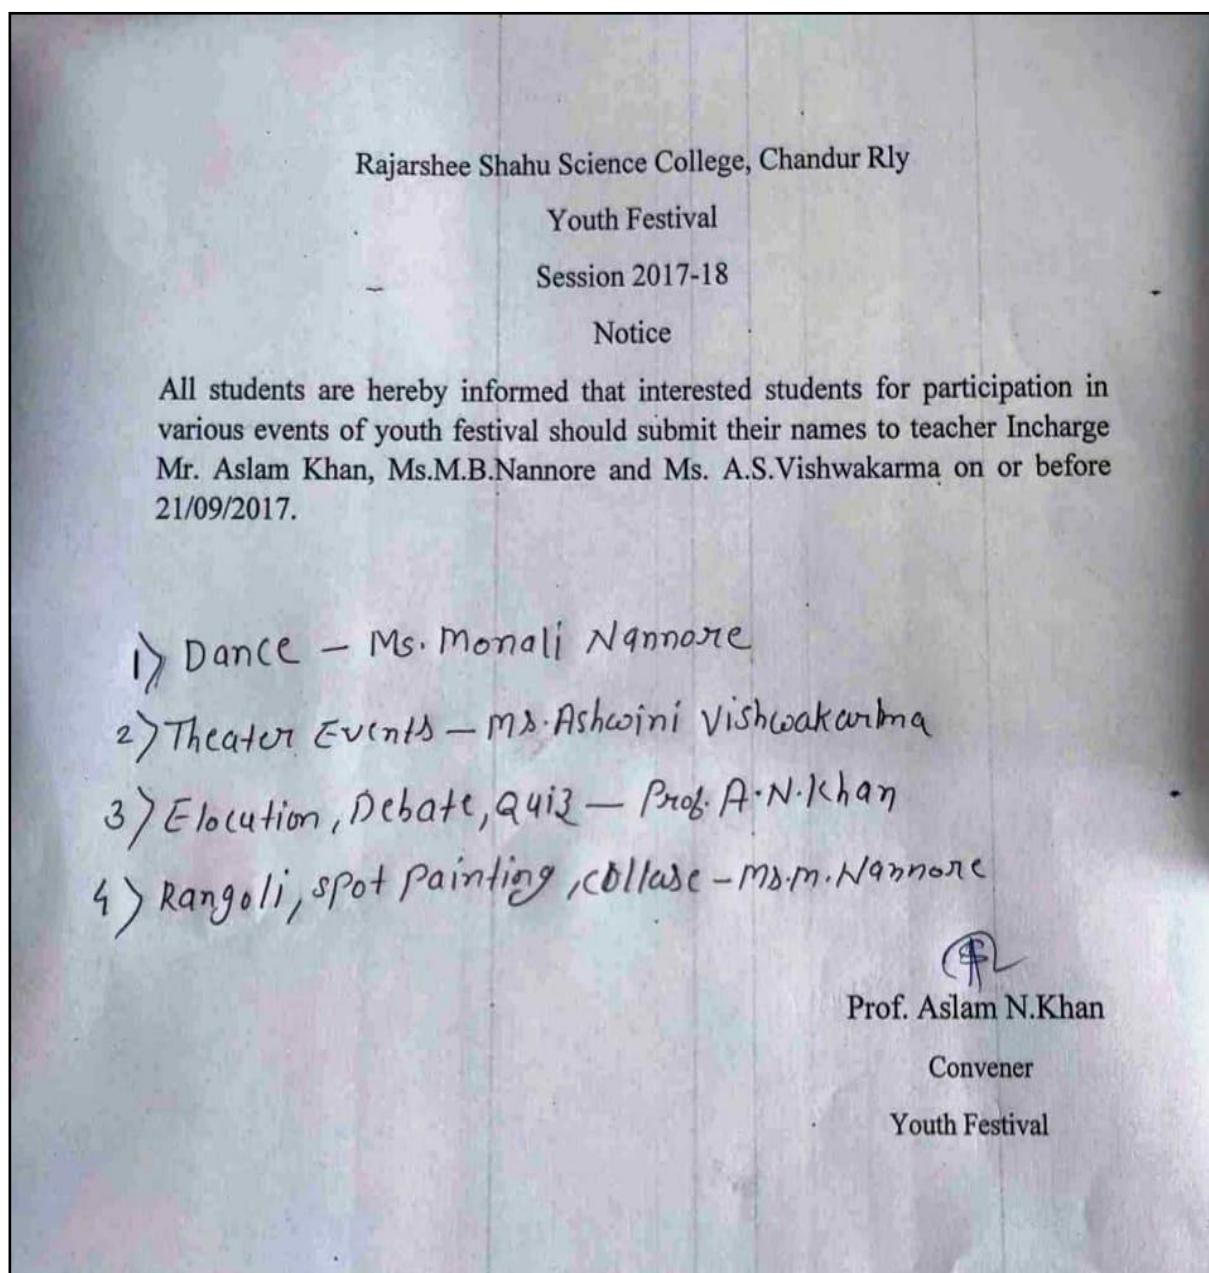 Rajarshee Shahu Science College, Chandur Rly
Youth Festival
Session 2017-18
Notice
All students are hereby informed that interested students for participation in
various events of youth festival should submit their names to teacher Incharge
Mr. Aslam Khan, Ms.M.B.Nannore and Ms. A.S.Vishwakarma on or before
21/09/2017.
1) Dance - Ms. Monali Nannore
2) Theater Events - Ms. Ashwini Vishwakarma
3) Elocution, Debate, Quiz - Prof. A.N.Khan
4) Rangoli, spot painting, collase - Ms.M. Nannore
Prof. Aslam N.Khan
Convener
Youth Festival